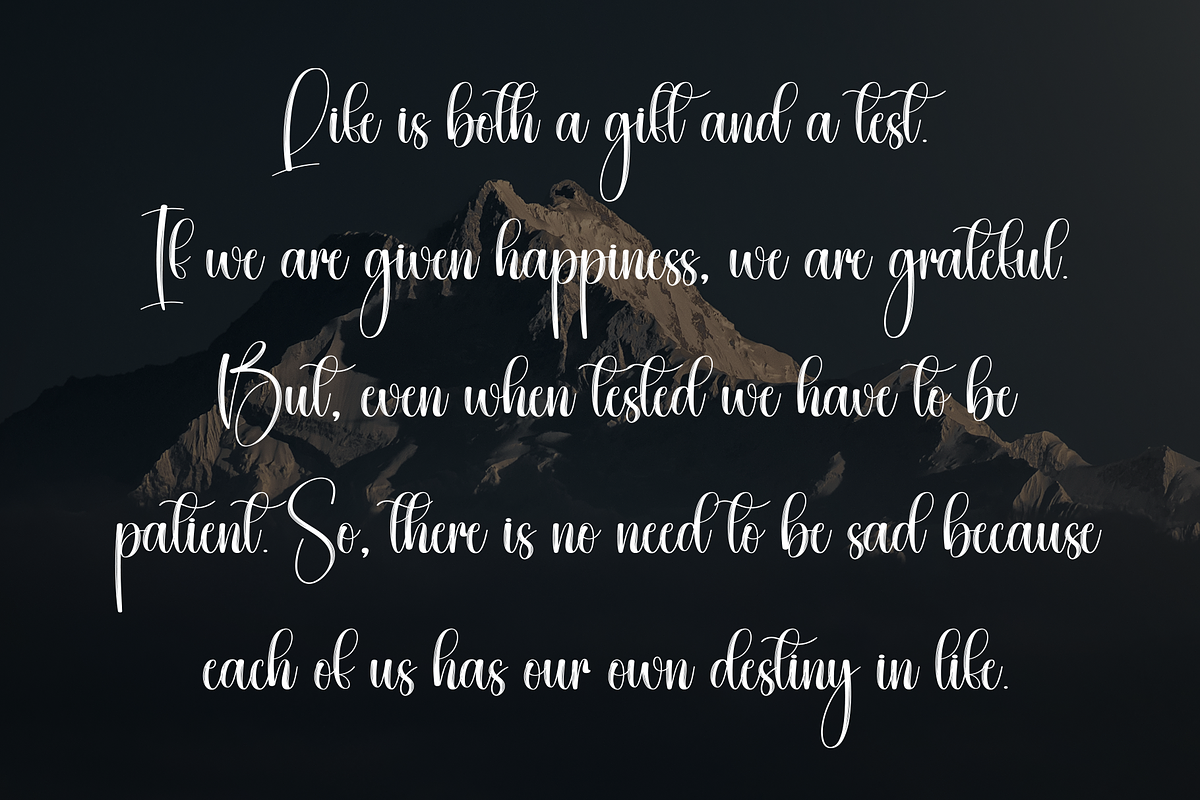 Life is both a gift and a test.
If we are given happiness, we are grateful.
But, even when tested we have to be
patient. So, there is no need to be sad because
each of us has our own destiny in life.